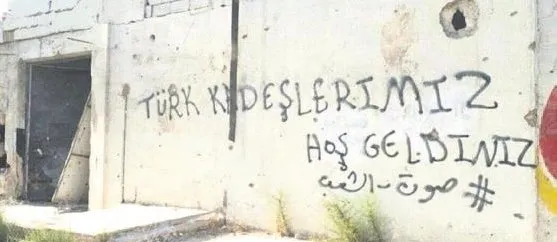 TÜRK KADEŞLERIMIZ
HOŞ GELDINIZ
#صوت_الشعب